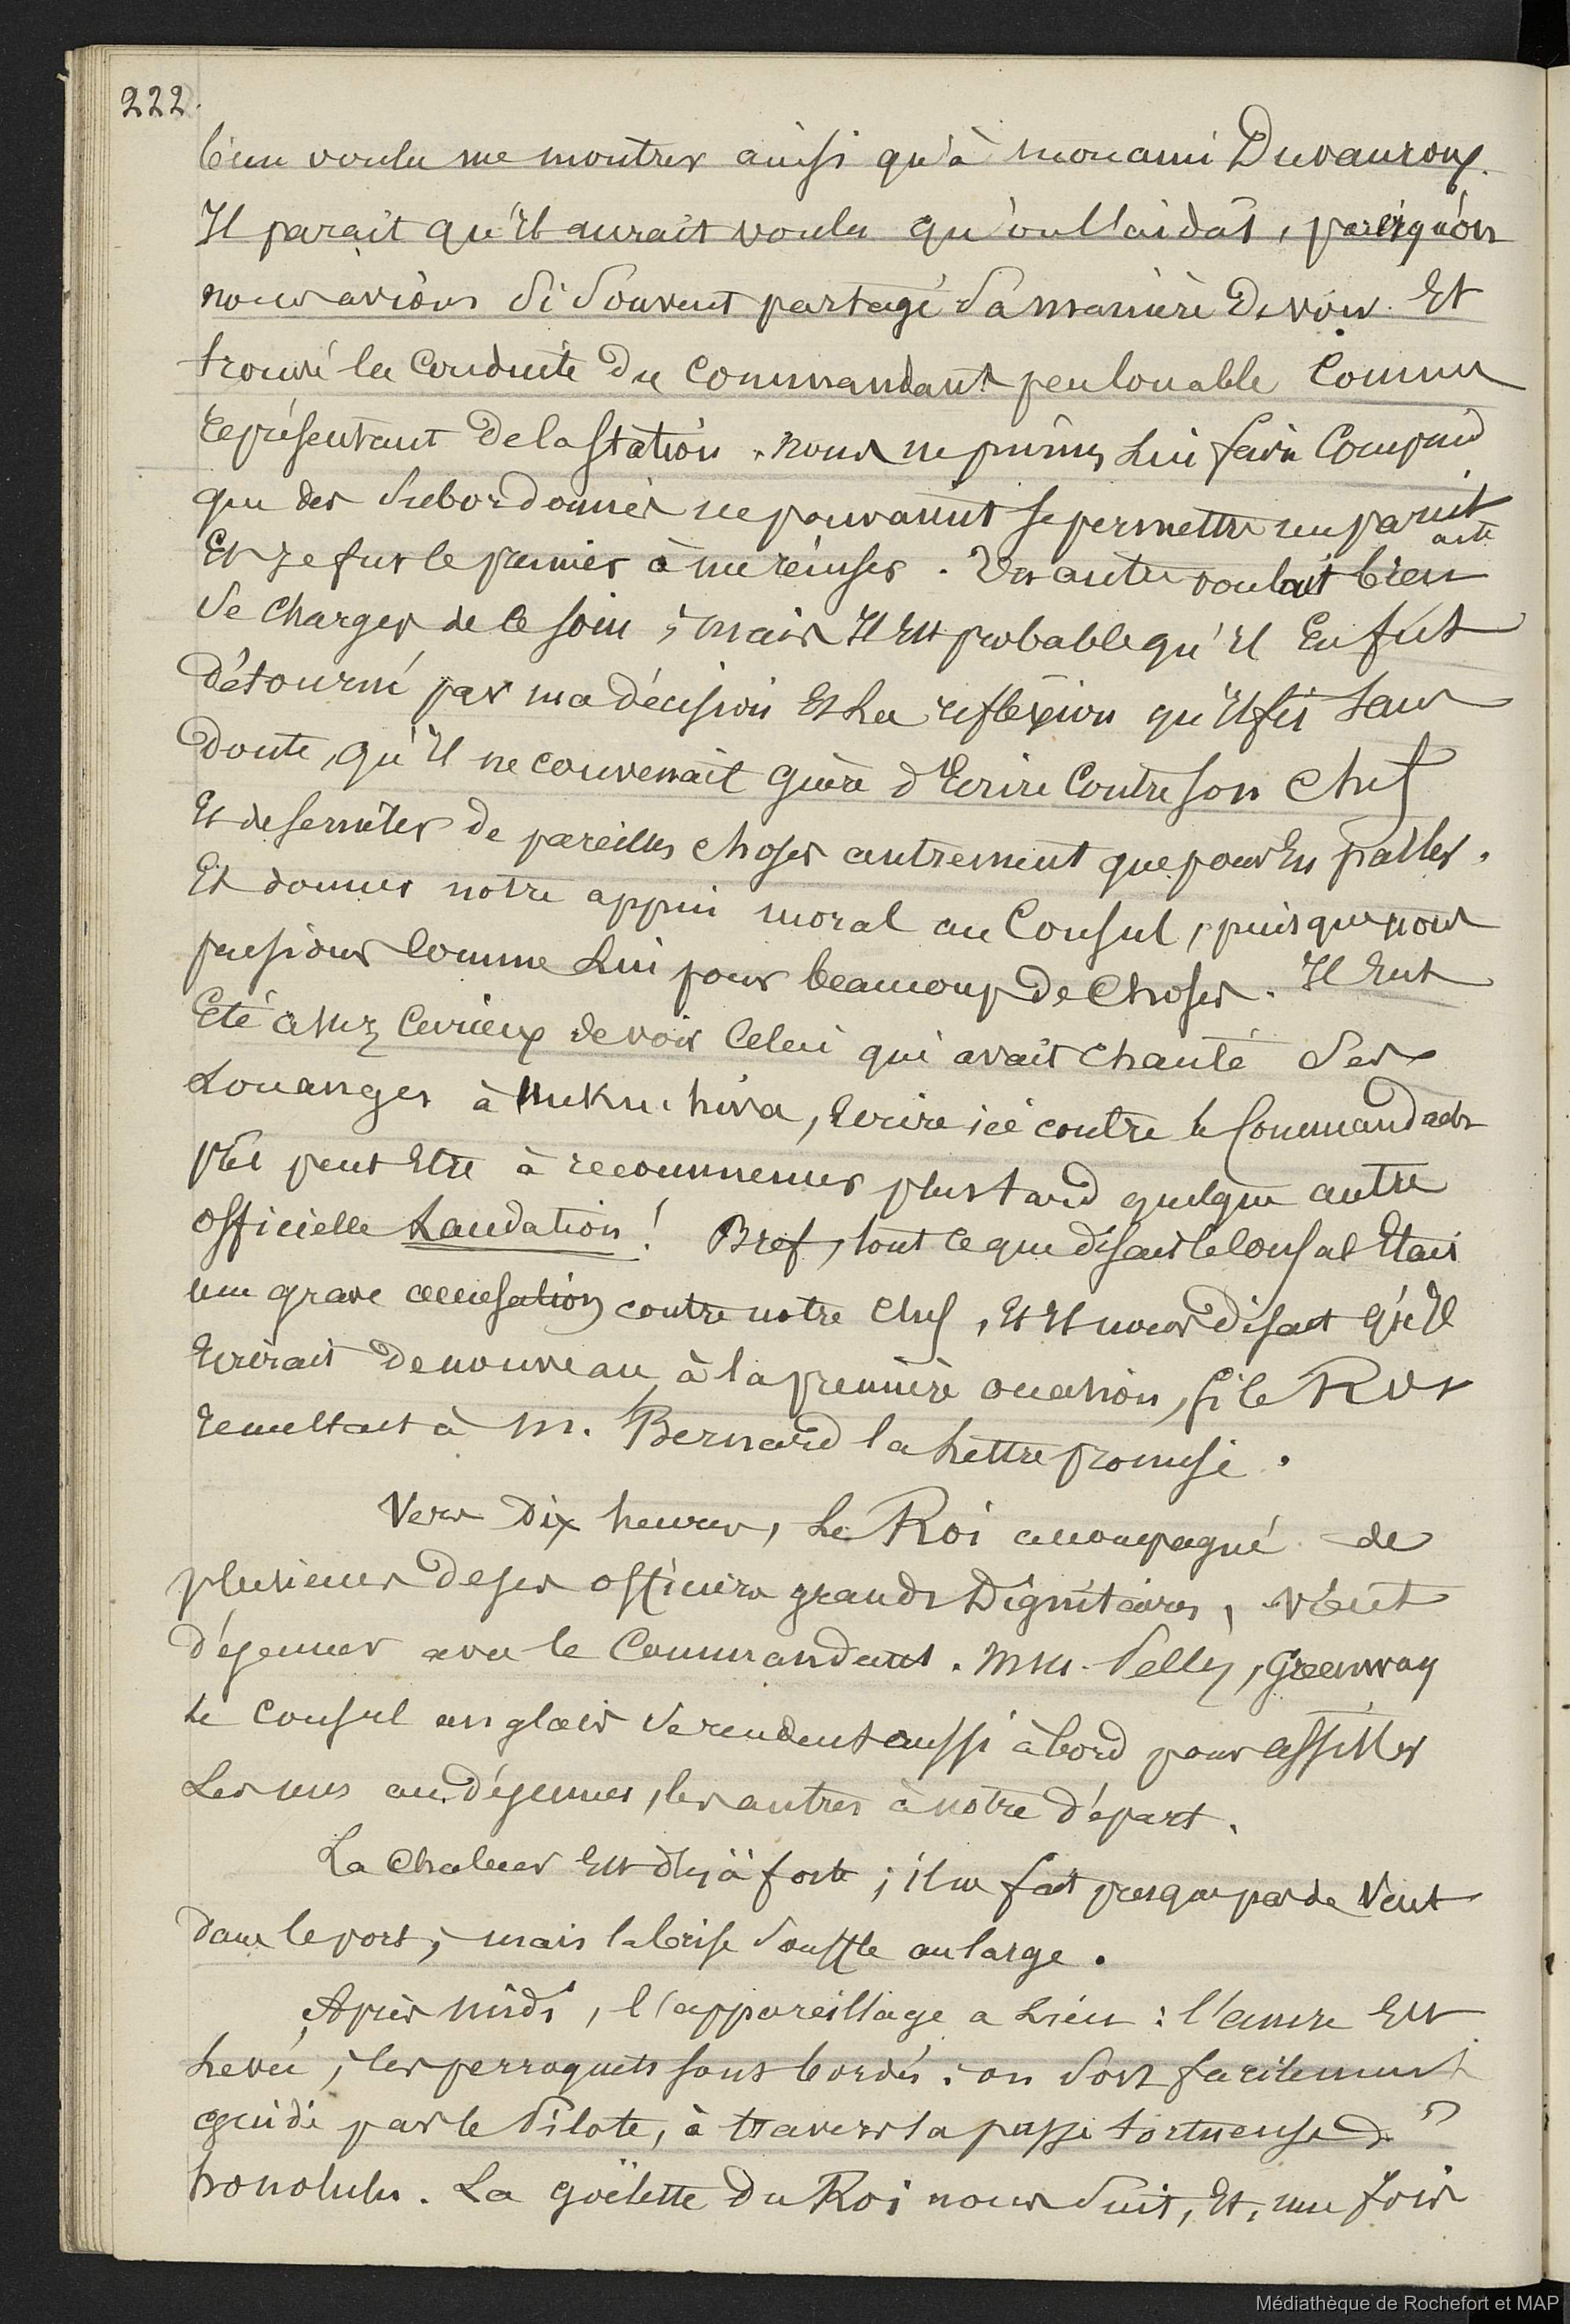 222.
bien voulu me montrer ainsi qu'à mon ami Duvauroux.
Il parait qu'il aurait voulu qu'on l'aidât, parcequ'on
nous avions si souvent partagé sa manière de voir. Et
trouvé la conduite du Commandant peu louable comme
représentant de la station. nous ne pûmes lui faire
que des subordonnés ne pouvaient se permettre un pareil
acte
Et je fus le premier à me récuser. Un autre voulait bien
se charger de ce soin ; mais Il Est probable qu'Il En fut
détourné par ma décision Et La réflexion qu'Il fit sans
doute, qu'Il ne convenait guère d'Ecrire contre son chef
Et de se mêler de pareilles choses autrement que pour En parler.
Et donner notre appui moral au Consul, puisque nous
pensions comme Lui pour beaucoup de choses. Il Eut
Eté assez curieux de voir celui qui avait chanté ses
Louanges à Nuku-hiva, Ecrire ici contre le Commandant
prêt peut Etre à recommencer plus tard quelque autre
officielle Laudation ! Bref, tout ce que disait le Consul Etait
une grave accusation contre notre chef, Et Il nous disait qu'Il
Ecrirait de nouveau à la première occasion, si le Roi
remettait à M. Bernard la Lettre promise.
Vers dix heures, Le Roi accompagné de
plusieurs de ses officiers grands Dignitaires, vient
déjeuner avec le Commandant. MM. Pelly, Greenway
Le Consul anglais se rendent aussi à bord pour assister
Les uns au déjeuner, les autres à notre départ.
La chaleur Est déjà forte ; il ne fait presque pas de vent
dans le port ; mais la brise souffle au large.
Après midi, l'appareillage a Lieu : l'ancre Est
Levée ; les perroquets sont bordés ; on sort facilement
guidé par le Pilote, à travers la passe tortueuse d'
honolulu. La goëlette du Roi nous suit, Et, une fois
Médiathèque de Rochefort et MAP